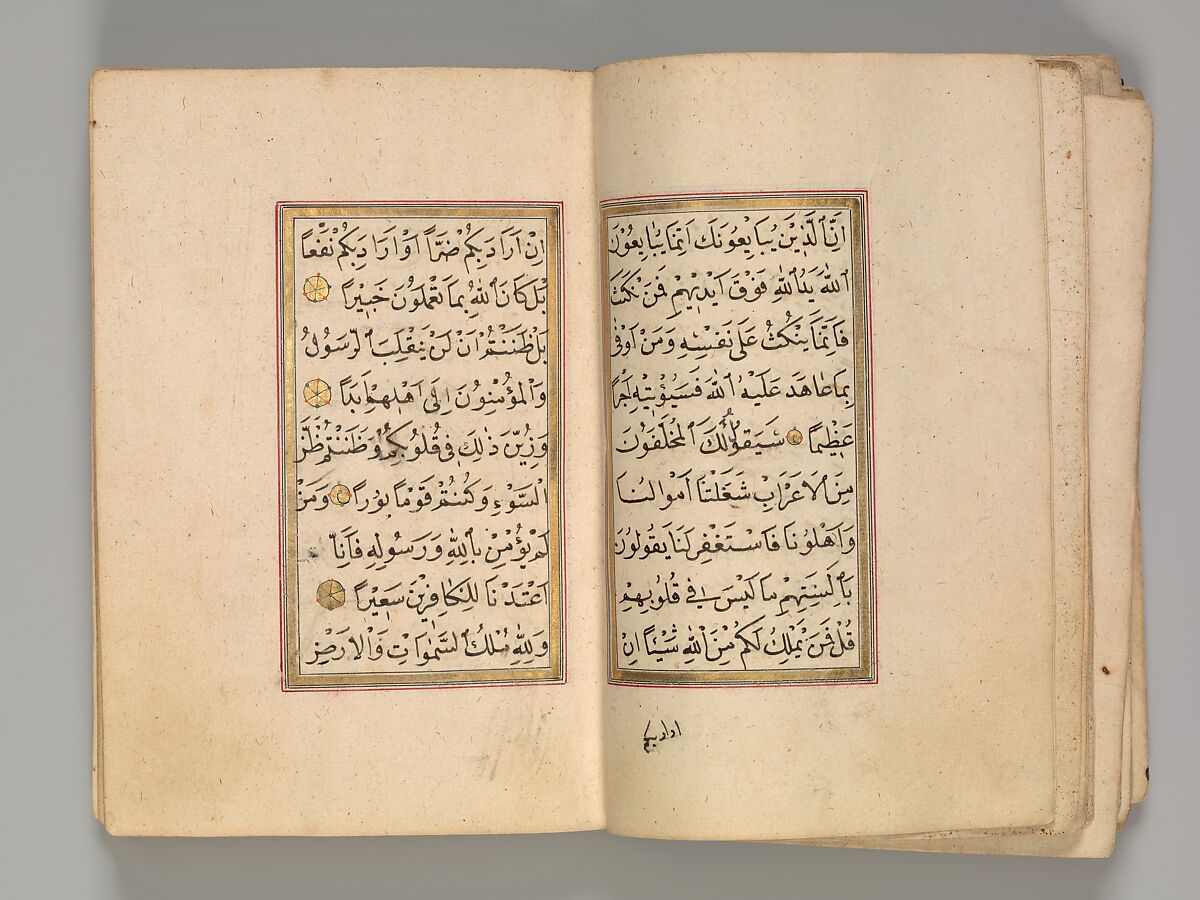 اِنَّ ٱلَّذِينَ يُبَايِعُونَكَ اِنَّمَا يُبَايِعُونَ
ٱللّٰهَ يَدُ ٱللّٰهِ فَوْقَ اَيْدِيْهِمْ فَمَنْ نَكَثَ
فَاِنَّمَا يَنْكُثُ عَلٰى نَفْسِهِ وَمَنْ اَوْفٰى
بِمَا عَاهَدَ عَلَيْهُ ٱللّٰهَ فَسَيُؤْتِيْهِ اَجْرًا
عَظِيْمًا سَيَقُوْلُ لَكَ ٱلْمُخَلَّفُوْنَ
مِنَ ٱلْاَعْرَابِ شَغَلَتْنَا اَمْوَالُنَا
وَاَهْلُوْنَا فَاسْتَغْفِرْ لَنَا يَقُولُوْنَ
بِاَلْسِنَتِهِمْ مَا لَيْسَ فِي قُلُوبِهِمْ
قُلْ فَمَنْ يَمْلِكُ لَكُمْ مِنَ ٱللّٰهِ شَيْئًا اِنْ
اراد بكم
اِنْ اَرَادَ بِكُمْ ضَرًّا اَوْ اَرَادَ بِكُمْ نَفْعًا
بَلْ كَانَ ٱللّٰهُ بِمَا تَعْمَلُوْنَ خَبِيْرًا
بَلْ ظَنَنْتُمْ اَنْ لَنْ يَنْقَلِبَ ٱلرَّسُوْلُ
وَٱلْمُؤْمِنُونَ اِلٰى اَهْلِيهِمْ اَبَدًا
وَزُيِّنَ ذٰلِكَ فِي قُلُوبِكُمْ وَظَنَنْتُمْ ظَنَّ
ٱلسَّوْءِ وَكُنْتُمْ قَوْمًا بُورًا وَمَنْ
لَمْ يُؤْمِنْ بِٱللّٰهِ وَرَسُولِهِ فَاِنَّا
اَعْتَدْنَا لِلْكَافِرِيْنَ سَعِيْرًا
وَلِلّٰهِ مُلْكُ ٱلسَّمٰوَاتِ وَٱلْاَرْضِ